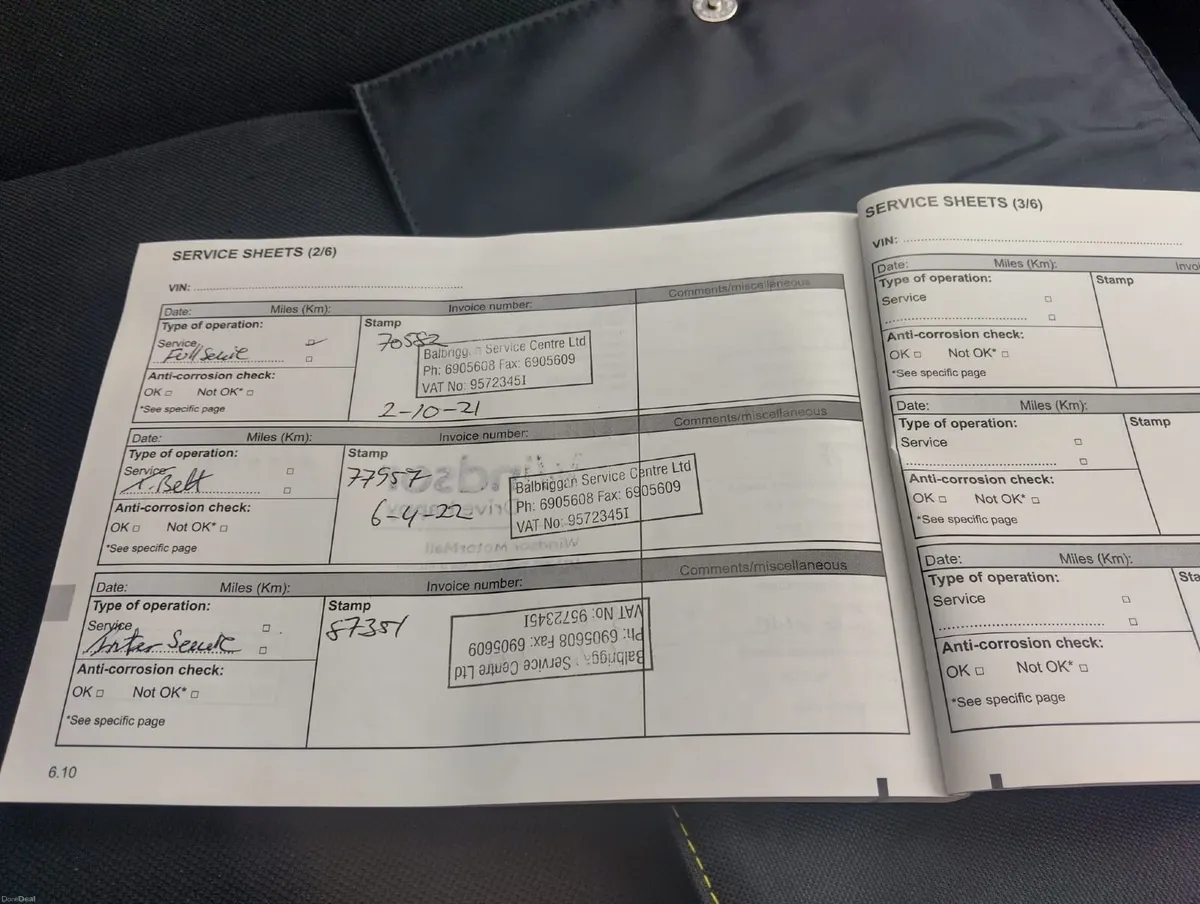 SERVICE SHEETS (2/6)
VIN:
Date: Miles (Km): Invoice number: Comments/miscellaneous
Type of operation:
Service
Full Service
Anti-corrosion check:
OK Not OK*
*See specific page
Stamp
70582
Balbriggan Service Centre Ltd
Ph: 6905608 Fax: 6905609
VAT No: 9572345I
2-10-21
Date: Miles (Km): Invoice number: Comments/miscellaneous
Type of operation:
Service
T-Belt
Anti-corrosion check:
OK Not OK*
*See specific page
Stamp
77957
6-4-22
Balbriggan Service Centre Ltd
Ph: 6905608 Fax: 6905609
VAT No: 9572345I
Date: Miles (Km): Invoice number: Comments/miscellaneous
Type of operation:
Service
Inter Service
Anti-corrosion check:
OK Not OK*
*See specific page
Stamp
87351
Balbriggan Service Centre Ltd
Ph: 6905608 Fax: 6905609
VAT No: 9572345I
6.10
SERVICE SHEETS (3/6)
VIN:
Date: Miles (Km): Invoi
Type of operation:
Service
Anti-corrosion check:
OK Not OK*
*See specific page
Stamp
Date: Miles (Km):
Type of operation:
Service
Anti-corrosion check:
OK Not OK*
*See specific page
Stamp
Date: Miles (Km):
Type of operation:
Service
Anti-corrosion check:
OK Not OK*
*See specific page
Sta
DoneDeal